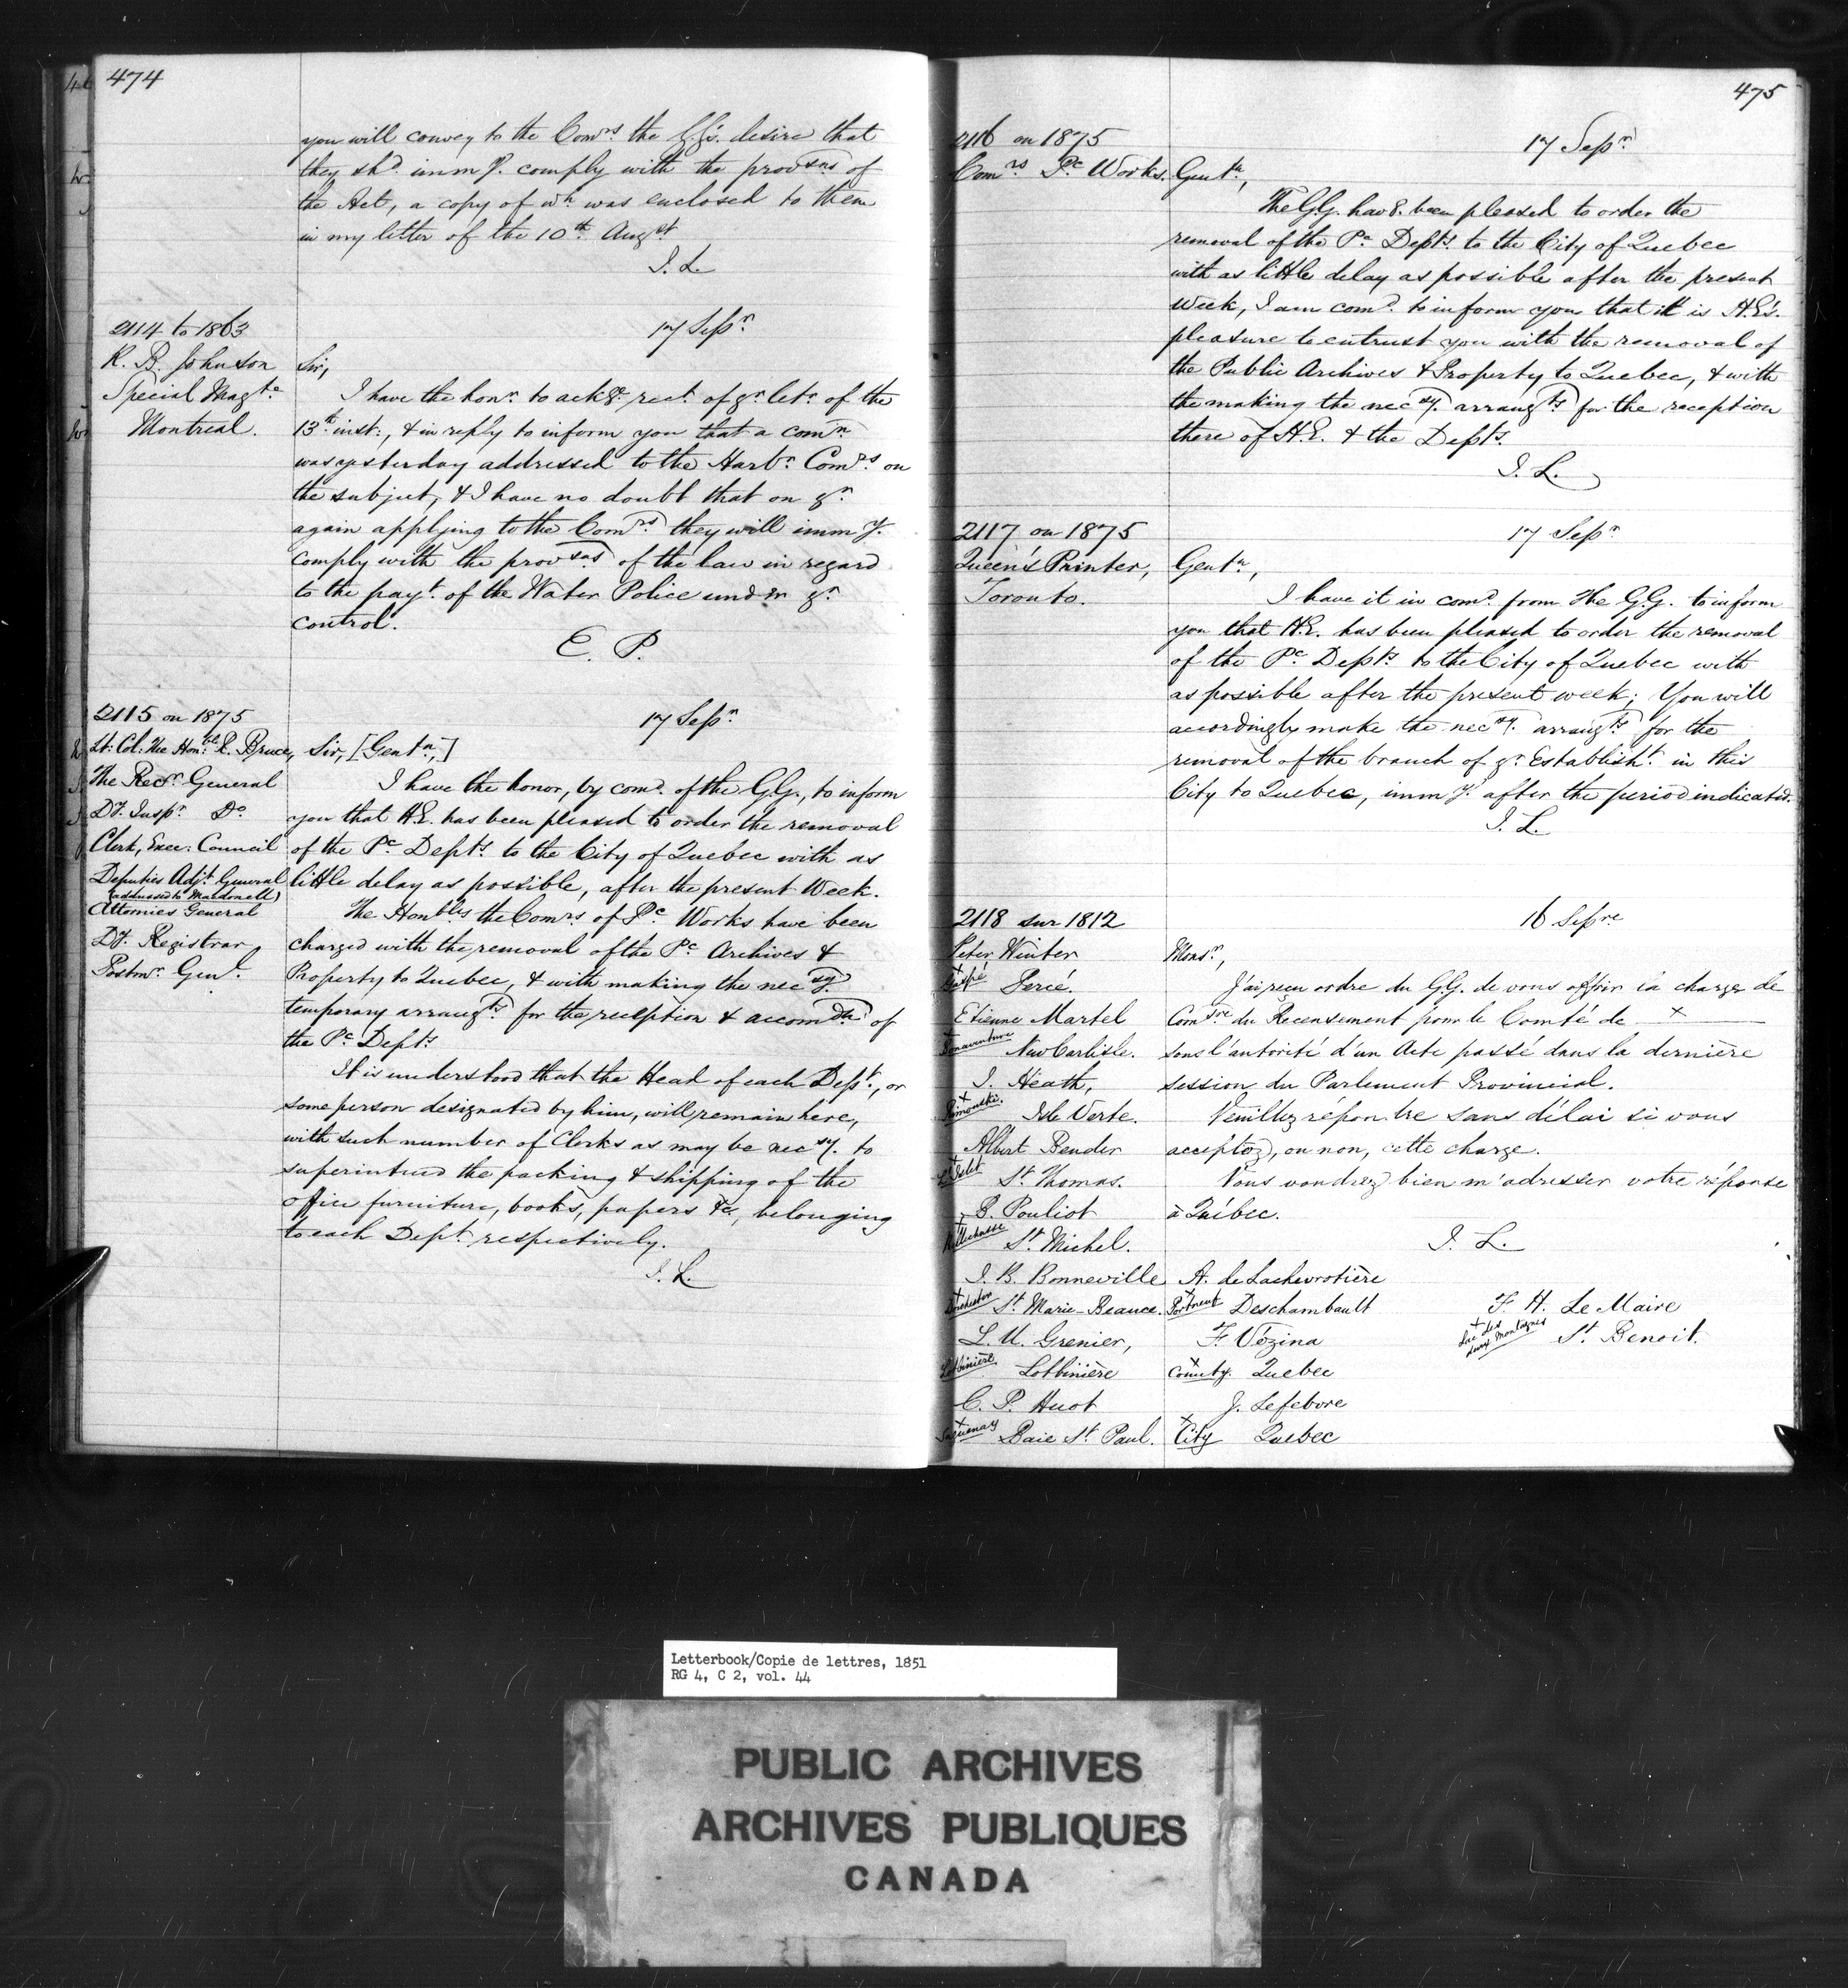 474
you will convey to the Comrs the G.G's. desire that
they shd. immy. comply with the provsns of
the Act, a copy of wh. was enclosed to them
in my letter of the 10th Augst.
J. L.
2114 to 1863
17 Sepr.
R. B. Johnson
Special Magte.
Montreal.
Sir,
I have the honr. to ackge. rect. of yr. letr. of the
13th inst:, & in reply to inform you that a comn.
was yesterday addressed to the Harbr. Comrs. on
the subject, & I have no doubt that on yr.
again applying to the Comrs. they will immy.
comply with the provsns of the law in regard
to the payt. of the Water Police under yr.
control.
E. P.
2115 on 1875
17 Sepr.
Lt: Col: The Honble. R. Bruce,
The Recr. General
Dy. Inspr. Do
Clerk, Exec: Council
Deputies Adjt. General
(addressed to Macdonell)
Attornies General
Dy. Registrar
Postmr. Genl.
Sir, [Gentn,]
I have the honor, by comd. of the G.G., to inform
you that H.E. has been pleased to order the removal
of the Pc Depts. to the City of Quebec with as
little delay as possible, after the present Week.
The Honbles the Comrs of Pc Works have been
charged with the removal of the Pc Archives &
Property to Quebec, & with making the necsy.
temporary arrangts. for the reception & accomdtn of
the Pc Depts
It is understood that the Head of each Dept., or
some person designated by him, will remain here,
with such number of Clerks as may be necsy. to
superintend the packing & shipping of the
office furniture, books, papers &c, belonging
to each Dept. respectively.
J. L.
475
2116 on 1875
17 Sepr.
Comrs Pc Works.
Gentn,
The G.G. havg. been pleased to order the
removal of the Pc Depts. to the City of Quebec
with as little delay as possible after the present
Week, I am comd. to inform you that it is H.E's.
pleasure to entrust you with the removal of
the Public Archives & Property to Quebec, & with
the making the necsy. arrangts for the reception
there of H.E. & the Depts.
J. L.
2117 on 1875
17 Sepr
Queen's Printer,
Toronto.
Gentn,
I have it in comd. from The G.G. to inform
you that H.E. has been pleased to order the removal
of the Pc Depts to the City of Quebec with
as possible after the present week; You will
accordingly make the necsy. arrangts. for the
removal of the branch of yr. Establisht. in this
City to Quebec, immy. after the period indicated.
J. L.
2118 sur 1812
16 Sepre
Peter Winter
x Gaspé Percé.
Etienne Martel
x Bonaventure New Carlisle.
J. Heath,
x Rimouski. Isle Verte.
Albert Bender
x L'Islet St. Thomas.
B. Pouliot
x Bellechasse St. Michel.
J. B. Bonneville
x Dorchester St Marie-Beauce.
L. U. Grenier,
Lotbinière Lotbinière
C. P. Huot
x Saguenay Baie St Paul.
Monsr,
J'ai reçu ordre du G.G. de vous offrir la charge de
Comsre du Recensement pour le Comté de x
sous l'autorité d'un Acte passé dans la dernière
session du Parlement Provincial.
Veuillez répondre sans délai si vous
acceptez, ou non, cette charge.
Vous voudrez bien m'adresser votre réponse
à Québec.
J. L.
A. de Lachevrotière
x Portneuf Deschambault
F. Vézina
x County. Quebec
J. Lefebvre
x City Quebec
F. H. Le Maire
x Lac des deux Montagnes St Benoit.
Letterbook/Copie de lettres, 1851
RG 4, C 2, vol. 44
PUBLIC ARCHIVES
ARCHIVES PUBLIQUES
CANADA